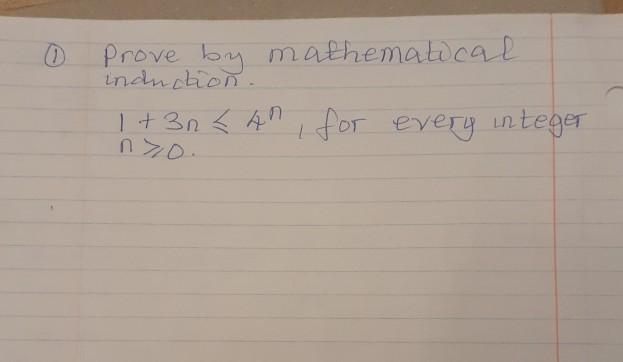 ① Prove by mathematical
induction.
1 + 3n ⩽ 4ⁿ, for every integer
n ⩾ 0.